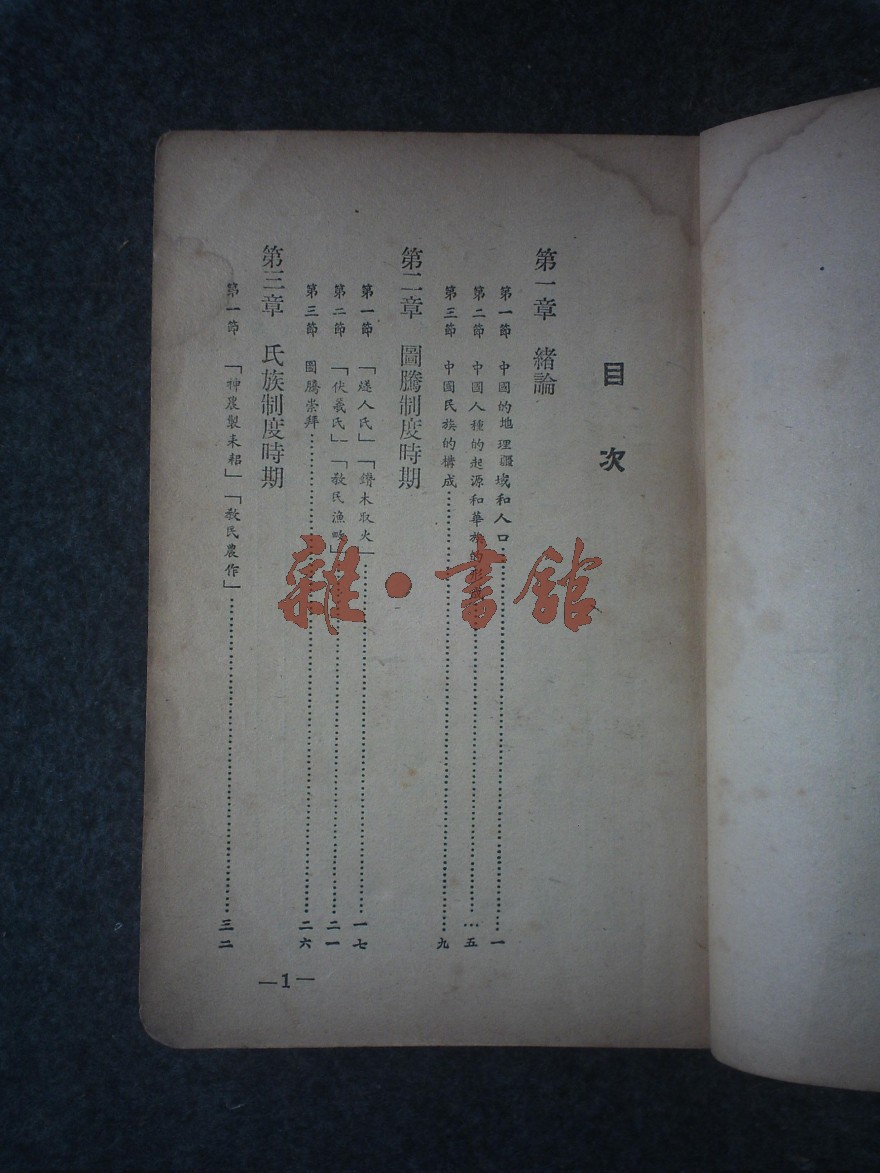 目次
第一章　緒論
第一節　中國的地理疆域和人口……一
第二節　中國人種的起源和華族的……五
第三節　中國民族的構成……九
第二章　圖騰制度時期
第一節　「燧人氏」「鑽木取火」……一七
第二節　「伏羲氏」「教民漁畋」……二一
第三節　圖騰崇拜……二六
第三章　氏族制度時期
第一節　「神農製耒耜」「教民農作」……三二
—1—
雜·書館